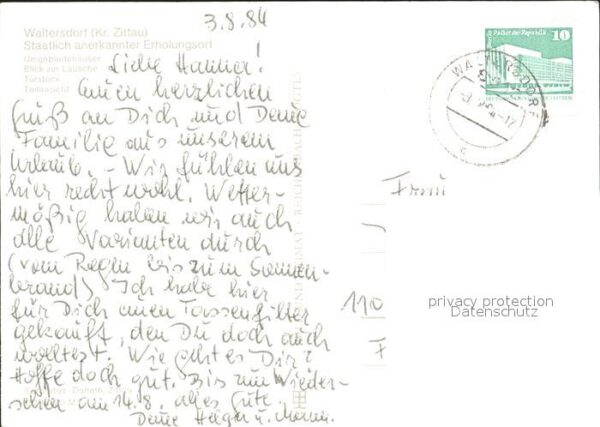 3.8.84
Waltersdorf (Kr. Zittau)
Staatlich anerkannter Erholungsort
Umgebindehäuser
Blick zur Lausche
Türstock
Teilansicht
Liebe Hanna!
Einen herzlichen
Gruß an Dich und Deine
Familie aus unserem
Urlaub. – Wir fühlen uns
hier recht wohl. Wetter-
mäßig haben wir auch
alle Varianten durch
(vom Regen bis zum Sonnen-
brand) Ich habe hier
für Dich einen Tassenfilter
gekauft, den Du doch auch
wolltest. Wie geht es Dir?
Hoffe doch gut. Bis zum Wieder-
sehen am 14.8. alles Gute.
Deine Helga u. Mann.
Palast der Republik
10
WALTERSDORF
Frau
110
F
privacy protection
Datenschutz